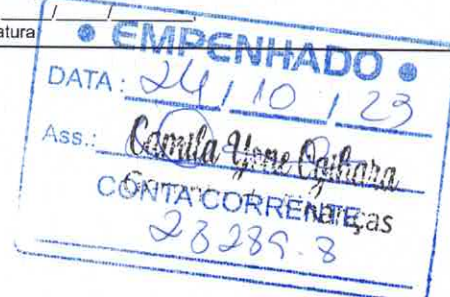 ___/___/___
atura
• EMPENHADO •
DATA: 24 / 10 / 23
Ass.: Camila Yone Ogihara
CONTA CORRENTE
23289-8